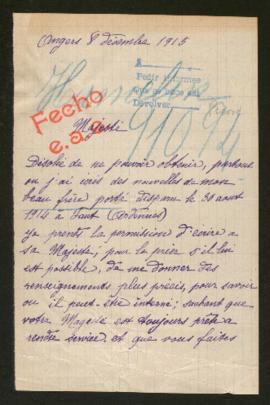 Angers 8 désembre 1915
A
Pedir informes
que se hace así
Devolver
Fecho
e.a.
910.94
Majesté
Désolée de ne pouvoir obtenir, partout
ou j'ai écris des nouvelles de mon
beau frère porté disparu le 30 aout
1914 à Vaux (Ardennes)
je prends la permission d'écrire a
sa Majesté; pour la prier s'il lui
est possible, de me donner des
renseignements plus précis, pour savoir
ou il peut-être interné; sachant que
votre Magesté est toujours prête a
rendre service et que vous faites